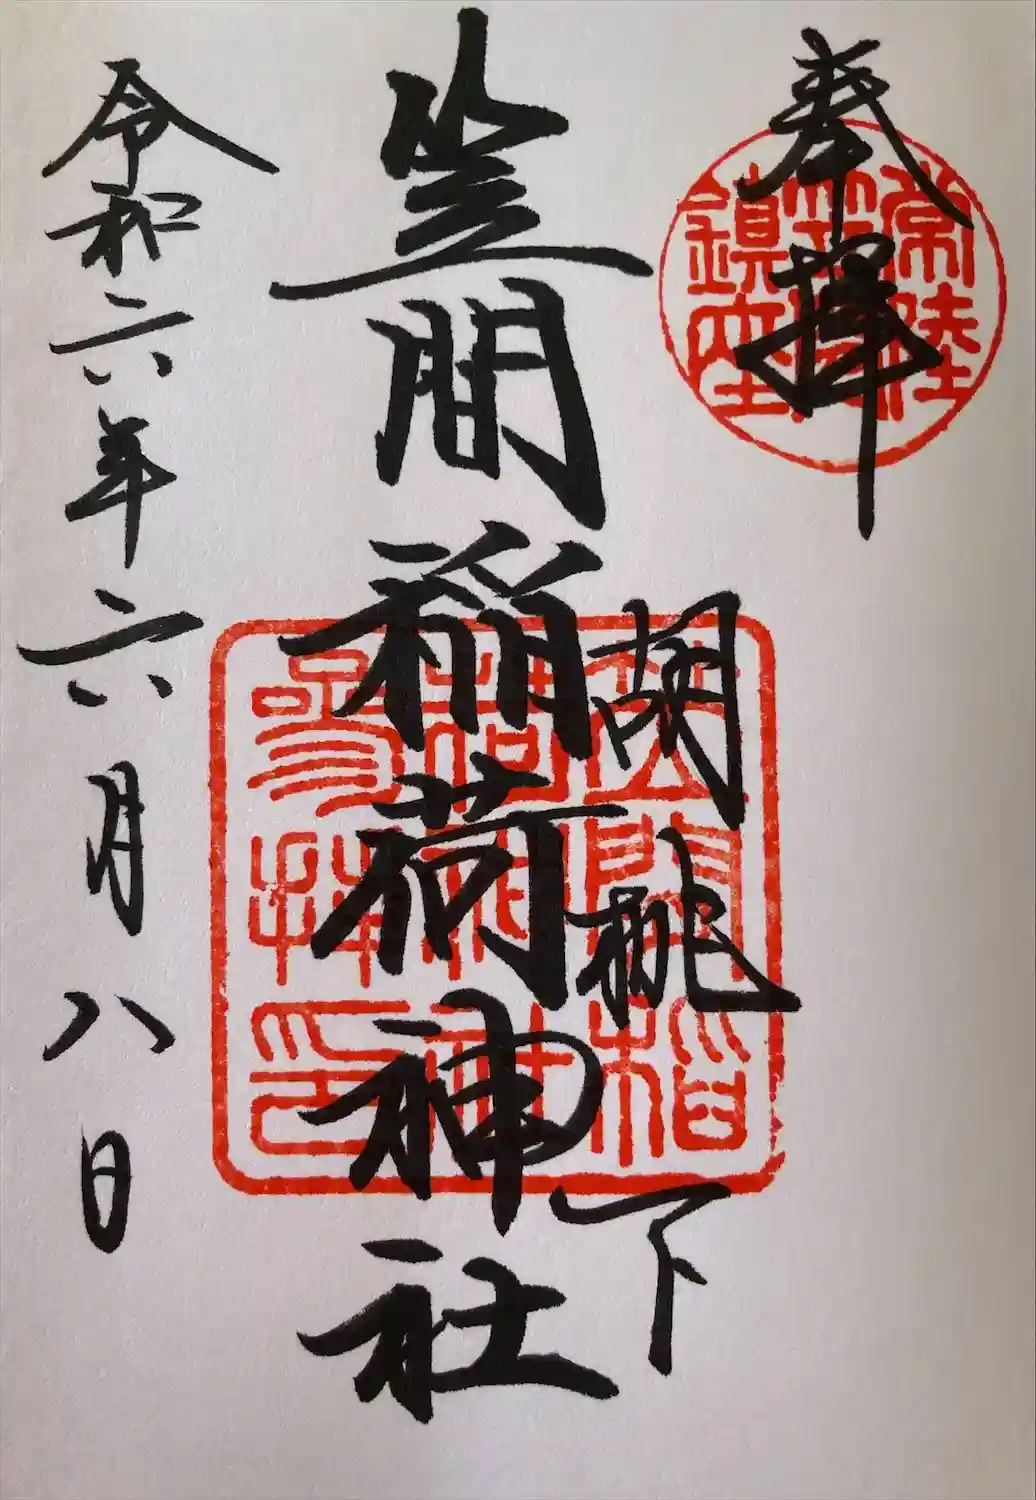 奉拝
常陸
笠間
鎮座
胡桃下
笠間稲荷神社
笠間稲
荷神社
参拝印
令和六年六月八日